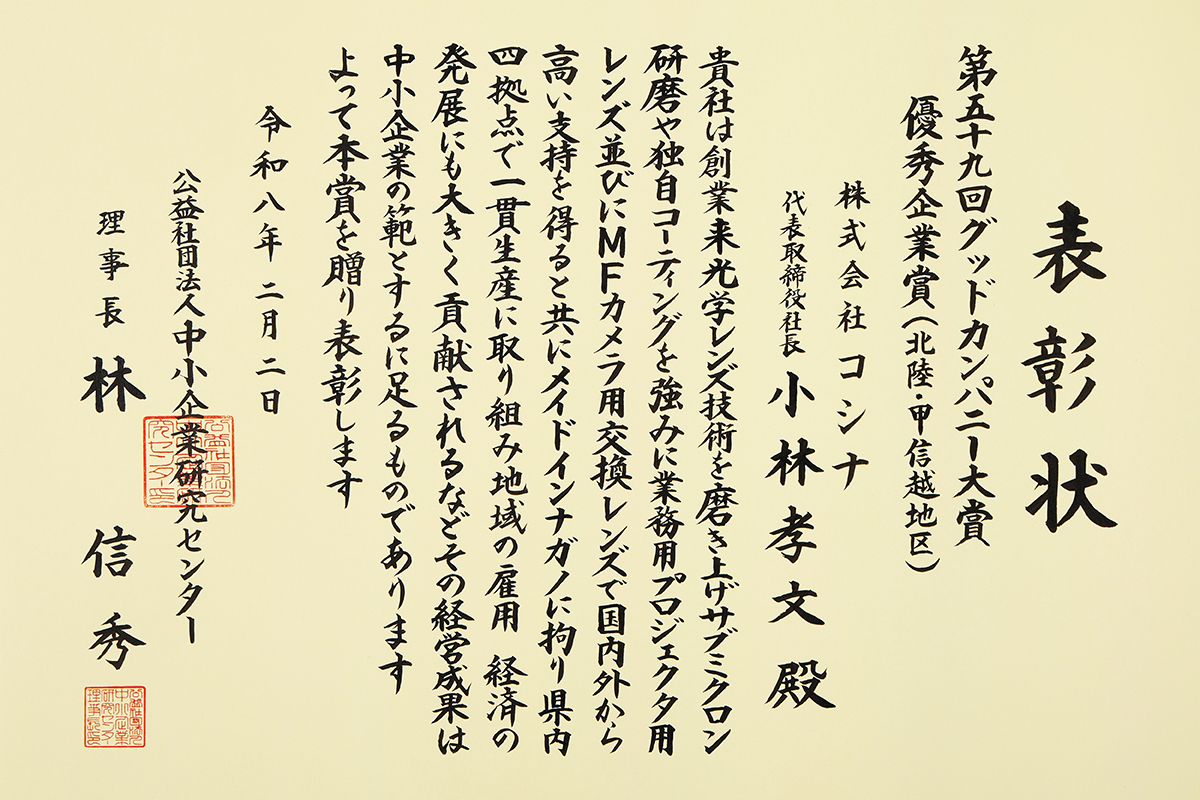 表彰状
第五十九回グッドカンパニー大賞
優秀企業賞(北陸・甲信越地区)
株式会社コシナ
代表取締役社長 小林孝文殿
貴社は創業来光学レンズ技術を磨き上げサブミクロン
研磨や独自コーティングを強みに業務用プロジェクタ用
レンズ並びにMFカメラ用交換レンズで国内外から
高い支持を得ると共にメイドインナガノに拘り県内
四拠点で一貫生産に取り組み地域の雇用 経済の
発展にも大きく貢献されるなどその経営成果は
中小企業の範とするに足るものであります
よって本賞を贈り表彰します
令和八年二月二日
公益社団法人中小企業研究センター
理事長 林 信秀